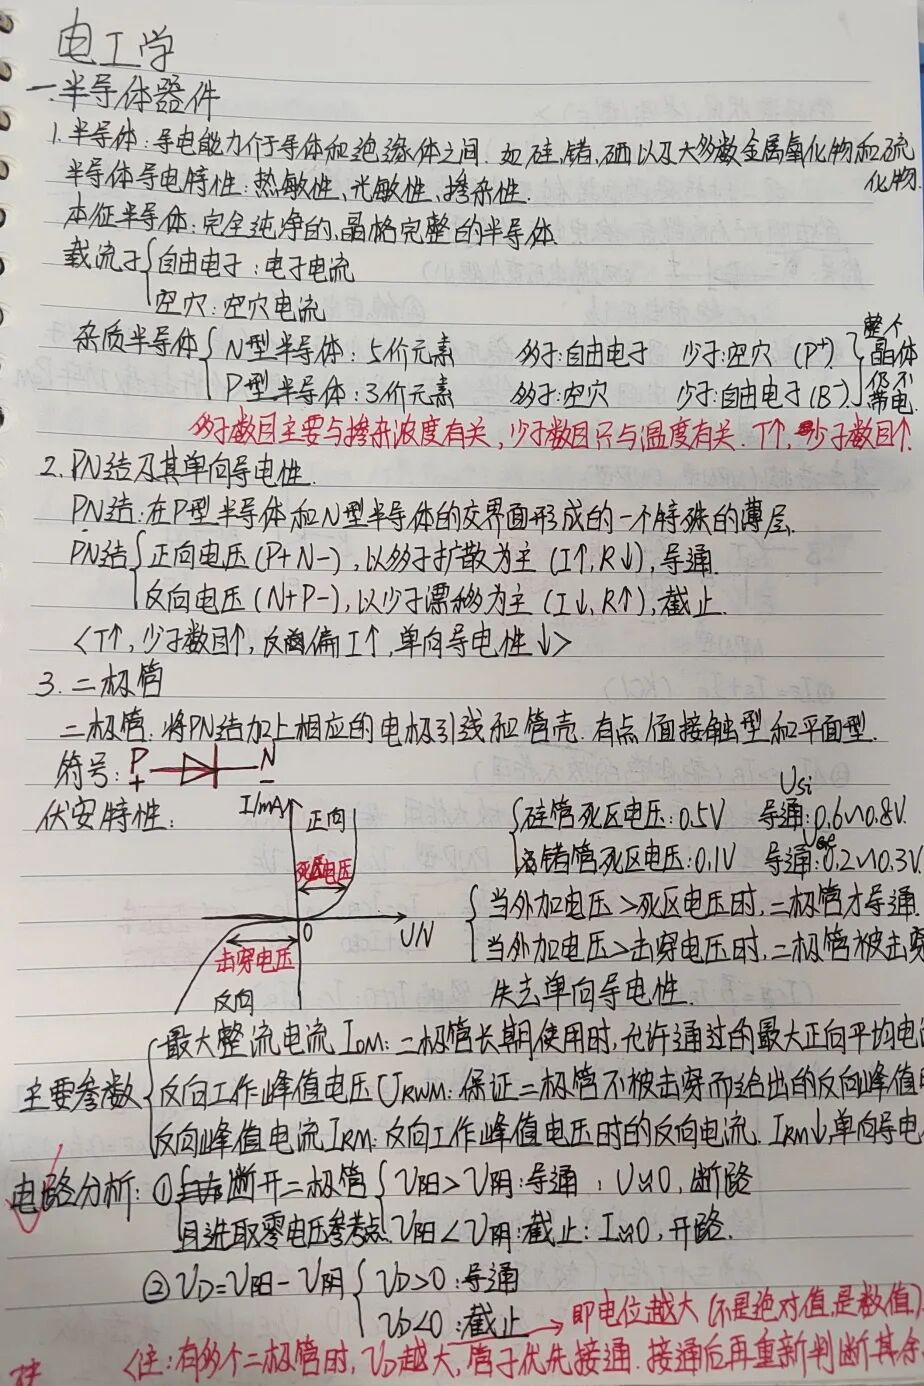 电工学
一.半导体器件
1.半导体:导电能力介于导体和绝缘体之间.如硅,锗,硒以及大多数金属氧化物和硫
化物.
半导体导电特性:热敏性、光敏性、掺杂性.
本征半导体:完全纯净的,晶格完整的半导体.
载流子{自由电子:电子电流
空穴:空穴电流
杂质半导体{N型半导体:5价元素 多子:自由电子 少子:空穴 (P⁺)
P型半导体:3价元素 多子:空穴 少子:自由电子(B⁻)
}整个
晶体
仍不
带电.
多子数目主要与掺杂浓度有关,少子数目只与温度有关.T↑,少子数目↑.
2.PN结及其单向导电性.
PN结:在P型半导体和N型半导体的交界面形成的一个特殊的薄层.
PN结{正向电压(P+N-),以多子扩散为主(I↑,R↓),导通.
反向电压(N+P-),以少子漂移为主(I↓,R↑),截止.
<T↑,少子数目↑,反偏I↑,单向导电性↓>
3.二极管
二极管.将PN结加上相应的电极引线和管壳.有点接触型和平面型.
符号: P N
+ -
伏安特性:
I/mA
正向
死区电压
0
U/V
击穿电压
反向
Usi
{硅管死区电压:0.5V 导通:0.6~0.8V.
UGe
锗管死区电压:0.1V 导通:0.2~0.3V.
{当外加电压>死区电压时,二极管才导通.
当外加电压>击穿电压时,二极管被击穿
失去单向导电性.
主要参数{最大整流电流IOM:二极管长期使用时,允许通过的最大正向平均电
反向工作峰值电压URWM:保证二极管不被击穿而给出的反向峰值
反向峰值电流IRM:反向工作峰值电压时的反向电流.IRM↓,单向导电
电路分析:①{断开二极管{V阳>V阴:导通:U≈0,断路
且选取零电压参考点.V阳<V阴:截止:I≈0,开路.
②UD=V阳-V阴{UD>0:导通
UD<0:截止
→即电位越大(不是绝对值,是数值)
<注:有多个二极管时,UD越大,管子优先接通.接通后再重新判断其余